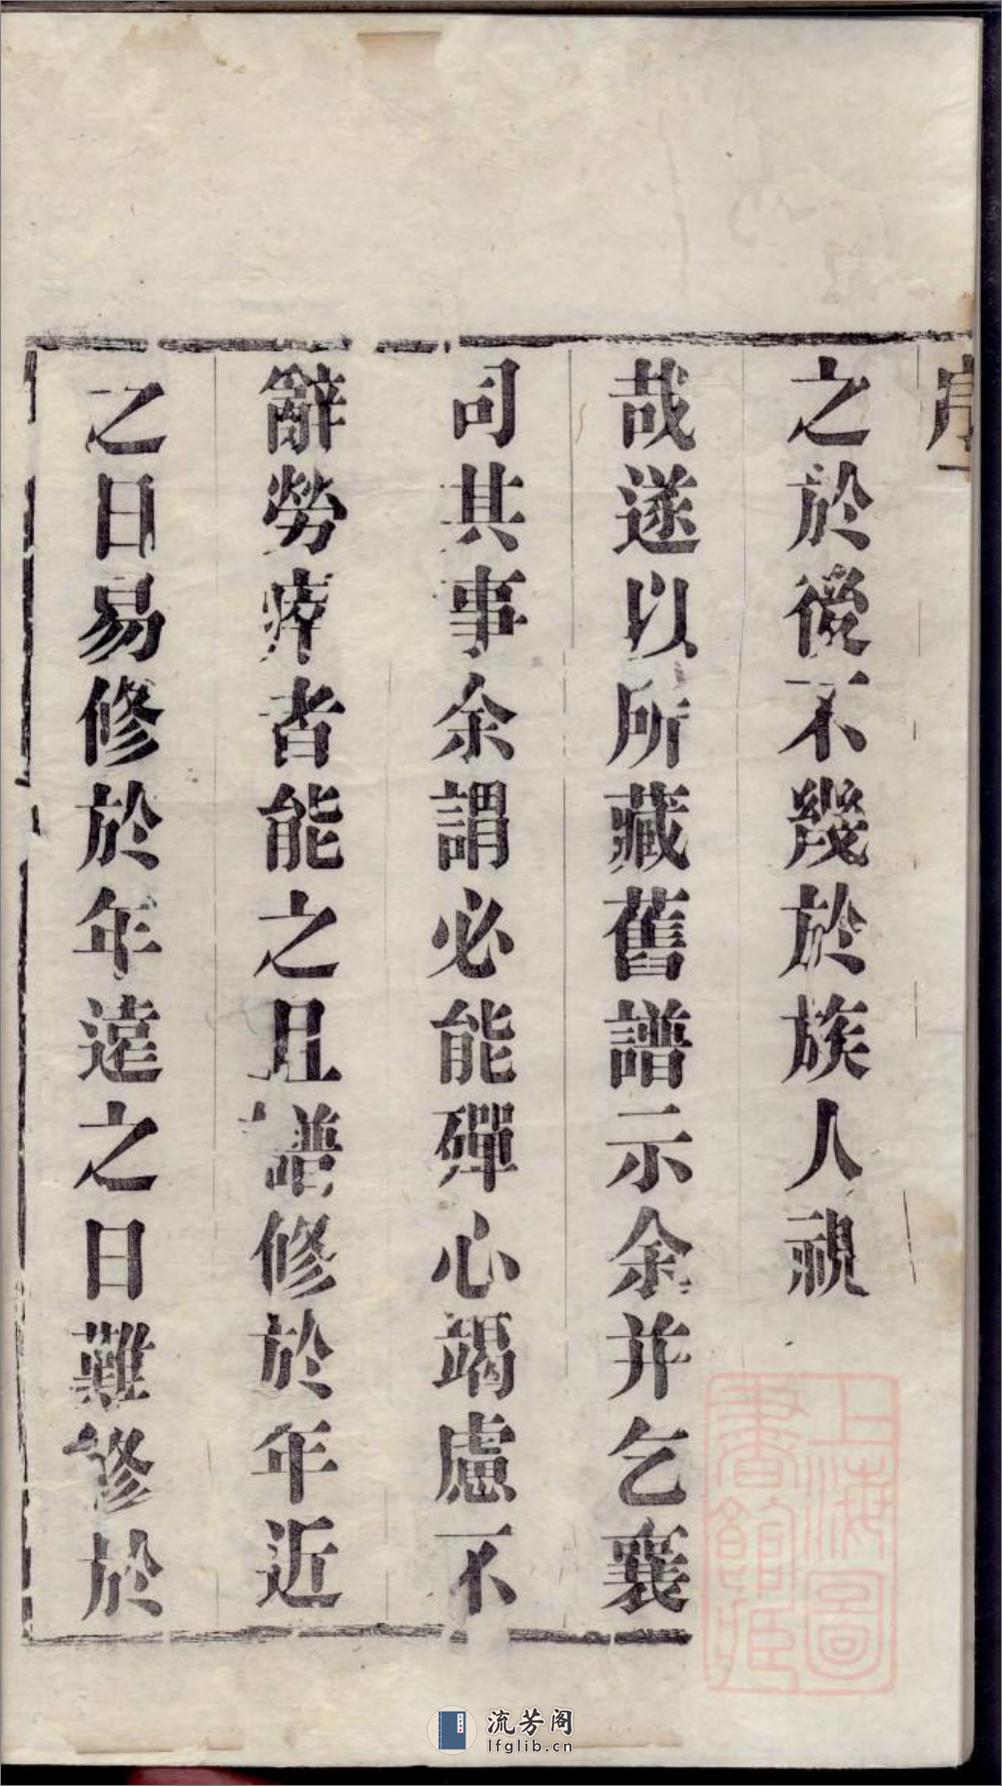 序
之於後不幾於族人視
哉遂以所藏舊譜示余并乞襄
司其事余謂必能殫心竭慮不
辭勞瘁者能之且譜修於年近
之日易修於年遠之日難修於
上海圖
書館藏
流芳阁
lfglib.cn